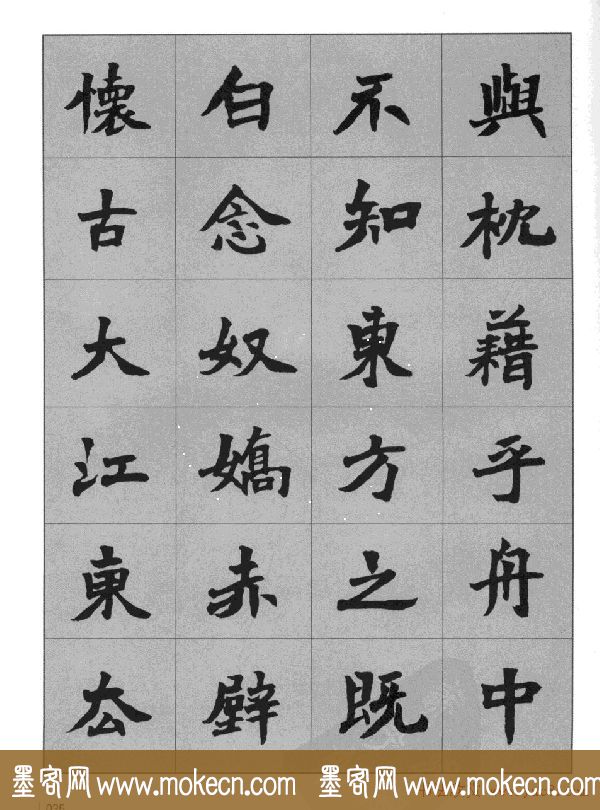 與枕藉乎舟中
不知東方之既
白念奴嬌赤壁
懷古大江東去
墨客网 www.mokecn.com 墨客网 www.mokecn.com